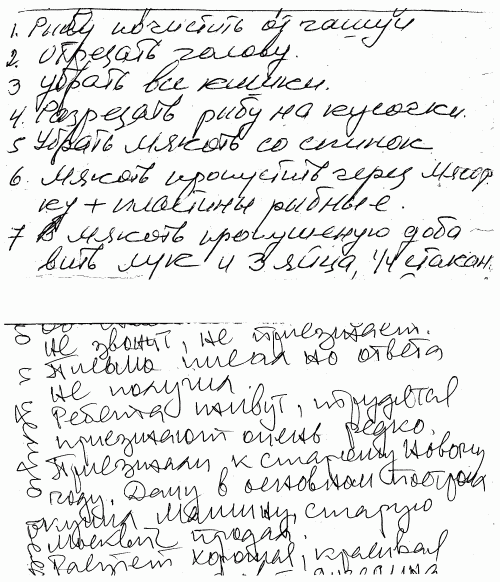 1. Рыбу почистить от чашуи
2. Отрезать голову.
3 Убрать все кишки.
4. Разрезать рибу на кусочки.
5 Убрать мякоть со спинок
6. мякоть пропустить через мясор
ку + пластины рибные.
7 В мякоть пропушеную доба
вить лук и 3 яйца, 1/4 стакан.
не звонит, не приезжает.
Письмо писал но ответа
не получил.
Ребята живут, трудятся
приезжают очень редко.
Приезжали к старому Новому
году. Дому в основном построил
купил машину, старую
москвич продал.
Растет хорошая, красивая